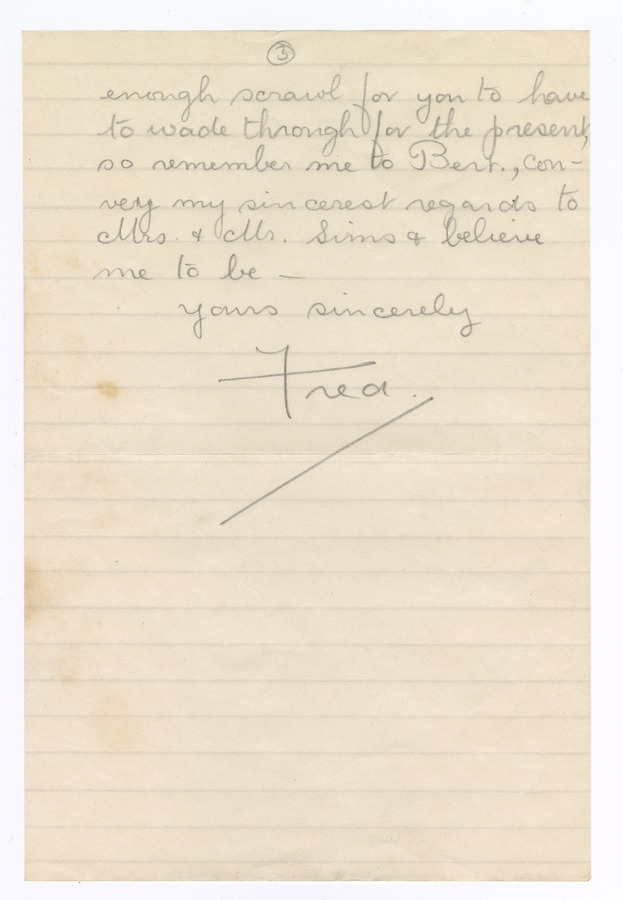 3
enough scrawl for you to have
to wade through for the present,
so remember me to Bert., con-
vey my sincerest regards to
Mrs. & Mr. Sims & believe
me to be —
yours sincerely
Fred.